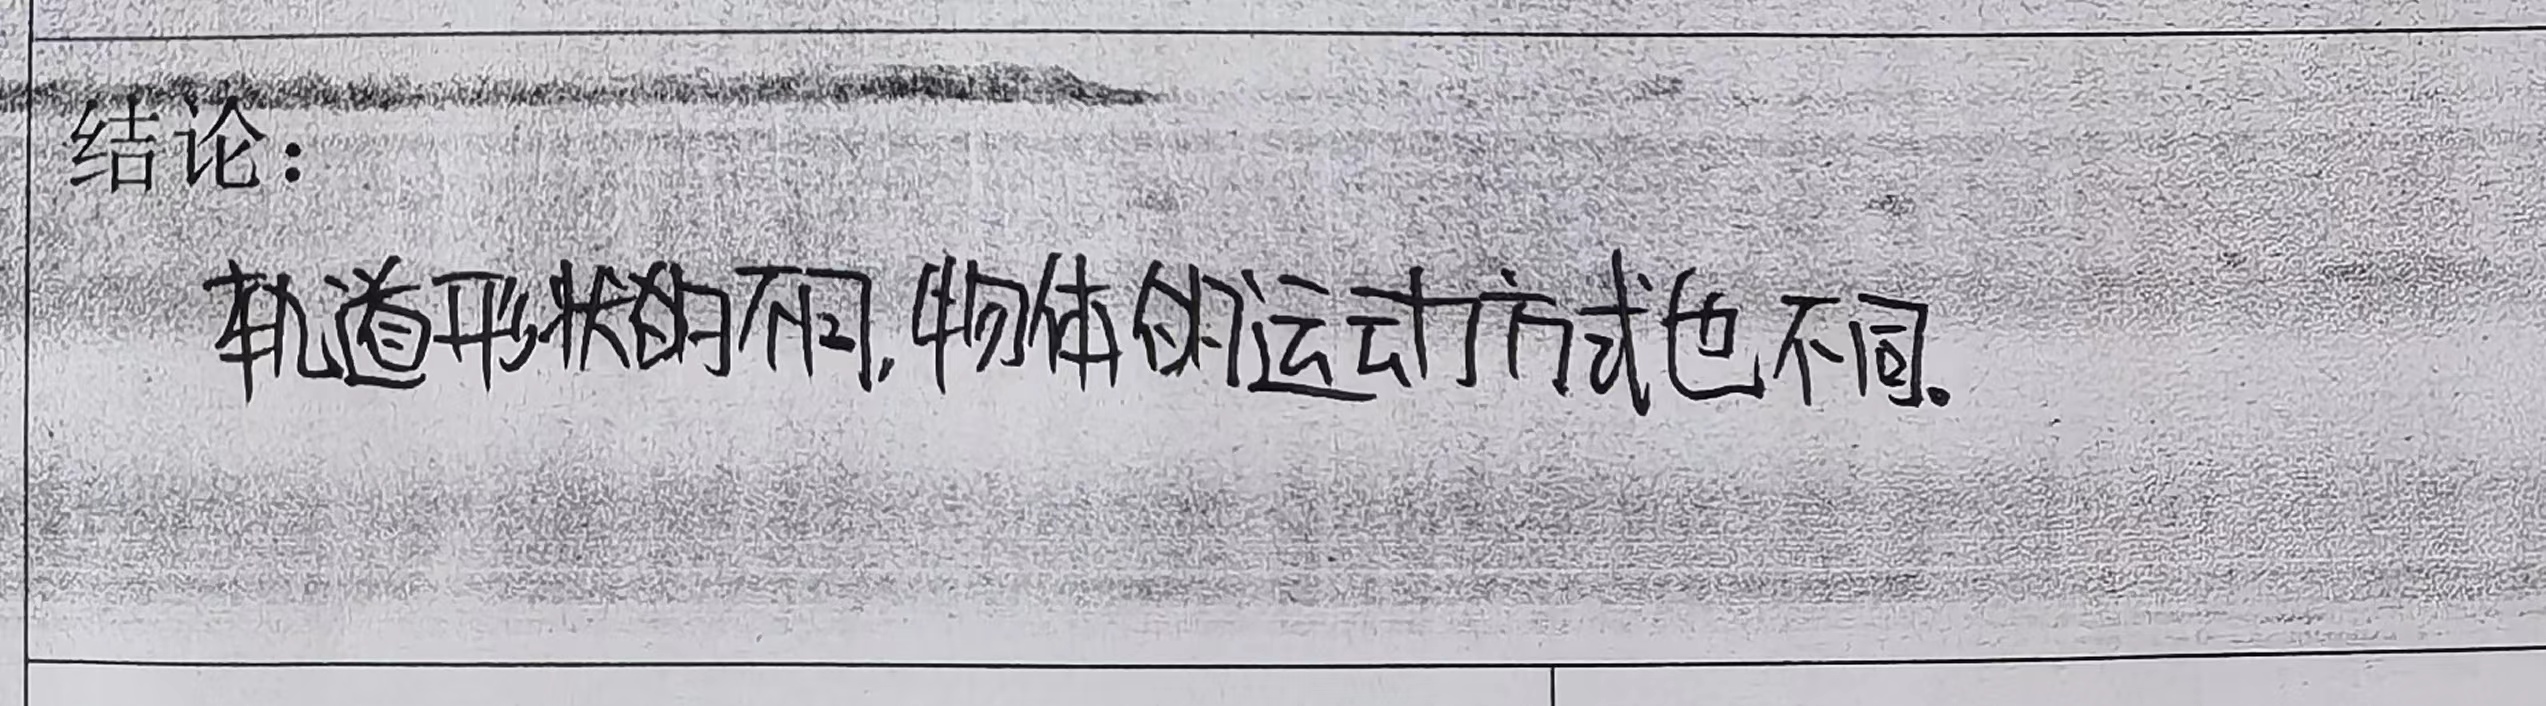 结论：
轨道形状的不同，物体的运动方式也不同。